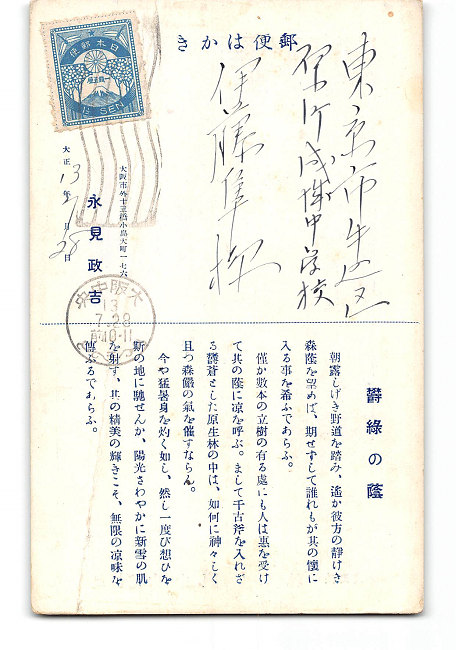 郵便はかき
東京市牛込区
原町成城中学校
伊藤隼様
大正13年7月28日
大阪市外十三橋小島大町一七六
永見政吉
日本郵便
1½ SEN
大阪中央
13
7.28
前10-11
鬱綠の蔭
朝露しげき野道を踏み、遙か彼方の靜けき
森蔭を望めば、期せずして誰れもが其の懷に
入る事を希ふであらふ。
僅か數本の立樹の有る處にも人は惠を受け
て其の蔭に凉を呼ぶ。まして千古斧を入れざ
る鬱蒼とした原生林の中は、如何に神々しく
且つ森嚴の氣を催すならん。
今や猛暑身を灼く如し、然し一度び想ひを
斯の地に馳せんか、陽光さわやかに新雪の肌
を射す、其の精美の輝きこそ、無限の凉味を
傳ふるであらふ。